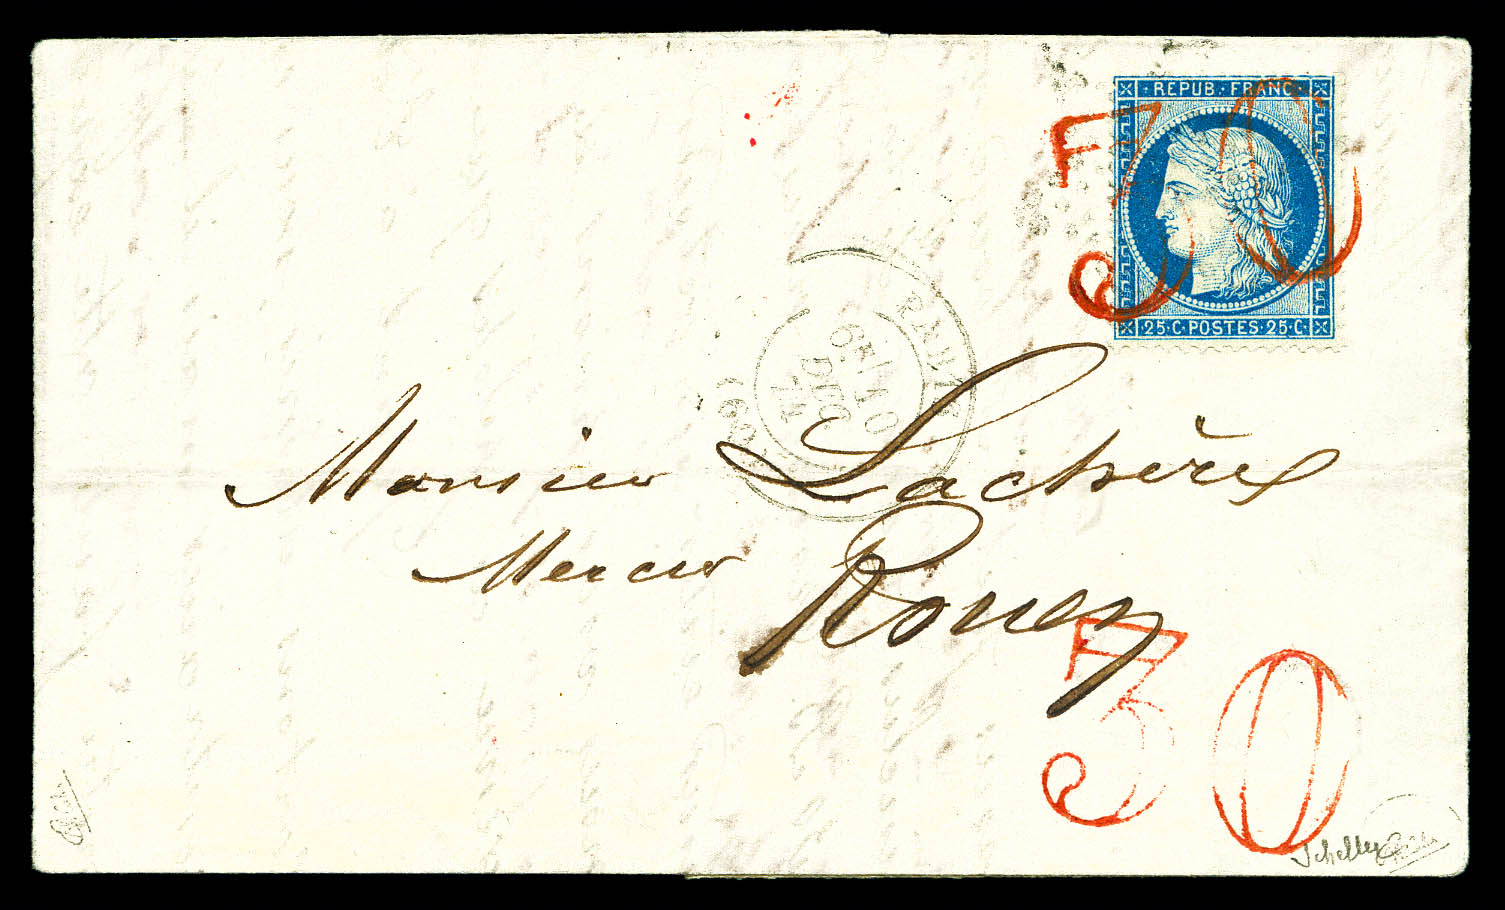 REPUB. FRANC.
25.C.POSTES.25.C.
30
PARIS
6E/ 10
DEC.
74
(60)
Monsieur Lachèvre
Mercier
Rouen
30
Schelley